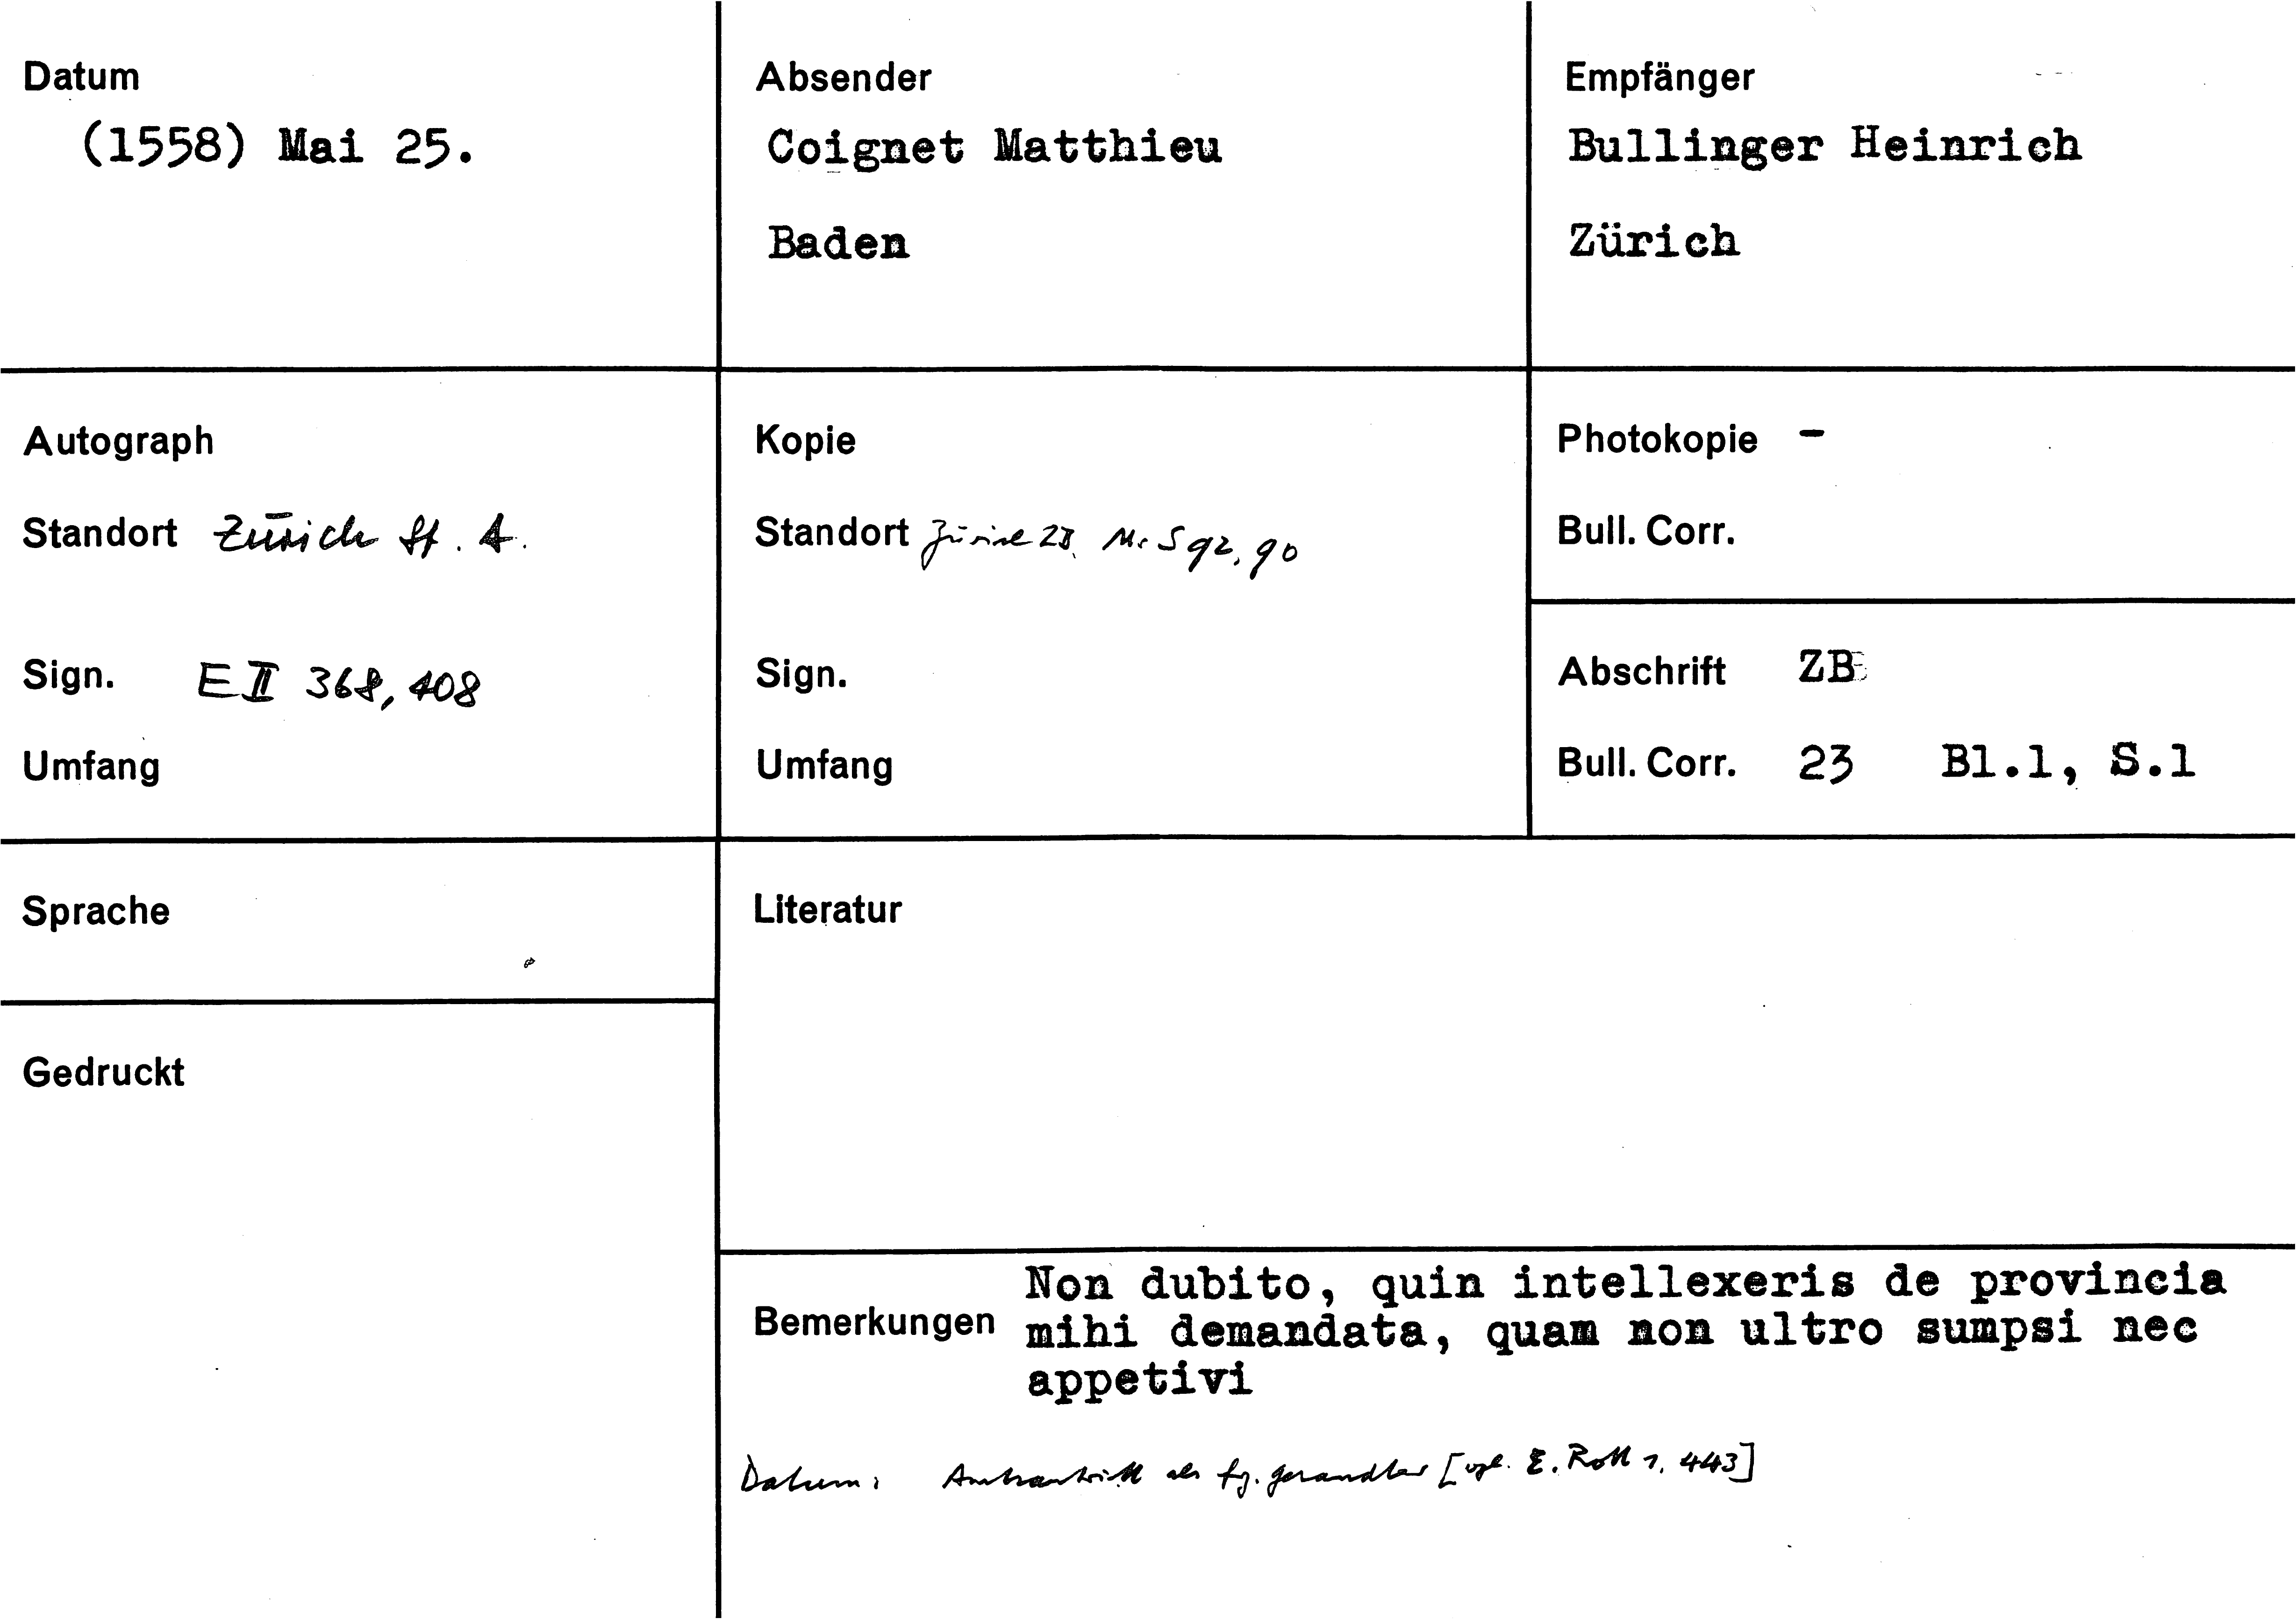 Datum
(1558) Mai 25.
Absender
Coignet Matthieu
Baden
Empfänger
Bullinger Heinrich
Zürich
Autograph
Standort Zürich St. A.
Sign. E II 368, 408
Umfang
Kopie
Standort Zürich ZB. Ms S 92, 90
Sign.
Umfang
Photokopie -
Bull. Corr.
Abschrift ZB
Bull. Corr. 23 Bl.1, S.1
Sprache
Literatur
Gedruckt
Bemerkungen Non dubito, quin intellexeris de provincia
mihi demandata, quam non ultro sumpsi nec
appetivi
Datum: Amtsantritt als fz. Gesandter [vgl. E. Rott 1, 443]